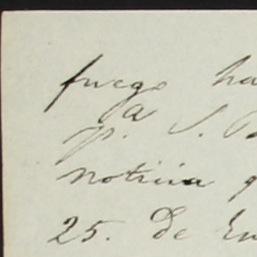 fuego ha
pª. S. B
noticia q
25. De En